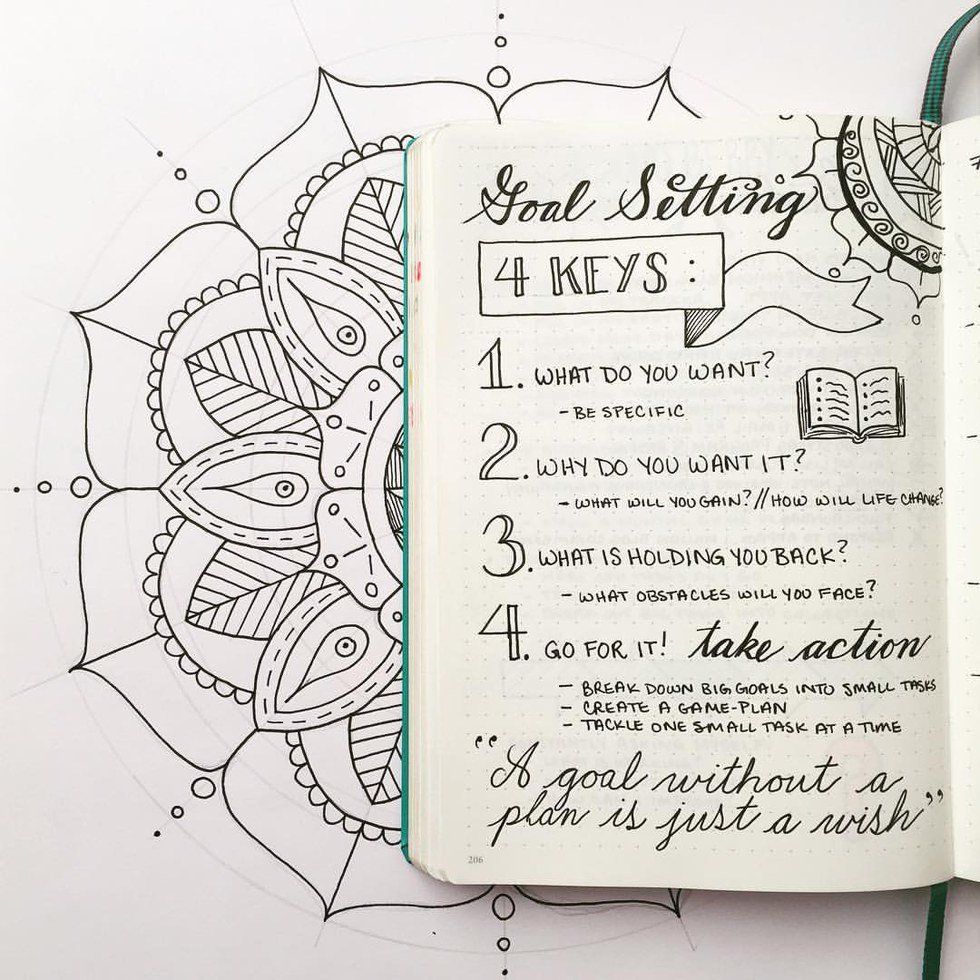 Goal Setting
4 KEYS:
1. WHAT DO YOU WANT?
- BE SPECIFIC
2. WHY DO YOU WANT IT?
- WHAT WILL YOU GAIN? // HOW WILL LIFE CHANGE?
3. WHAT IS HOLDING YOU BACK?
- WHAT OBSTACLES WILL YOU FACE?
4. GO FOR IT! take action
- BREAK DOWN BIG GOALS INTO SMALL TASKS
- CREATE A GAME-PLAN
- TACKLE ONE SMALL TASK AT A TIME
"A goal without a
plan is just a wish"
206